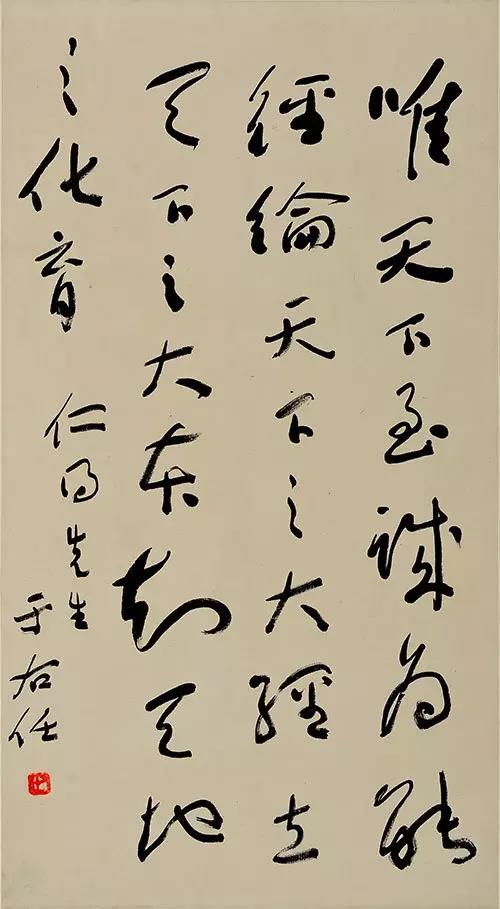 唯天下至誠為能
經綸天下之大經立
天下之大本知天地
之化育
仁同先生
于右任